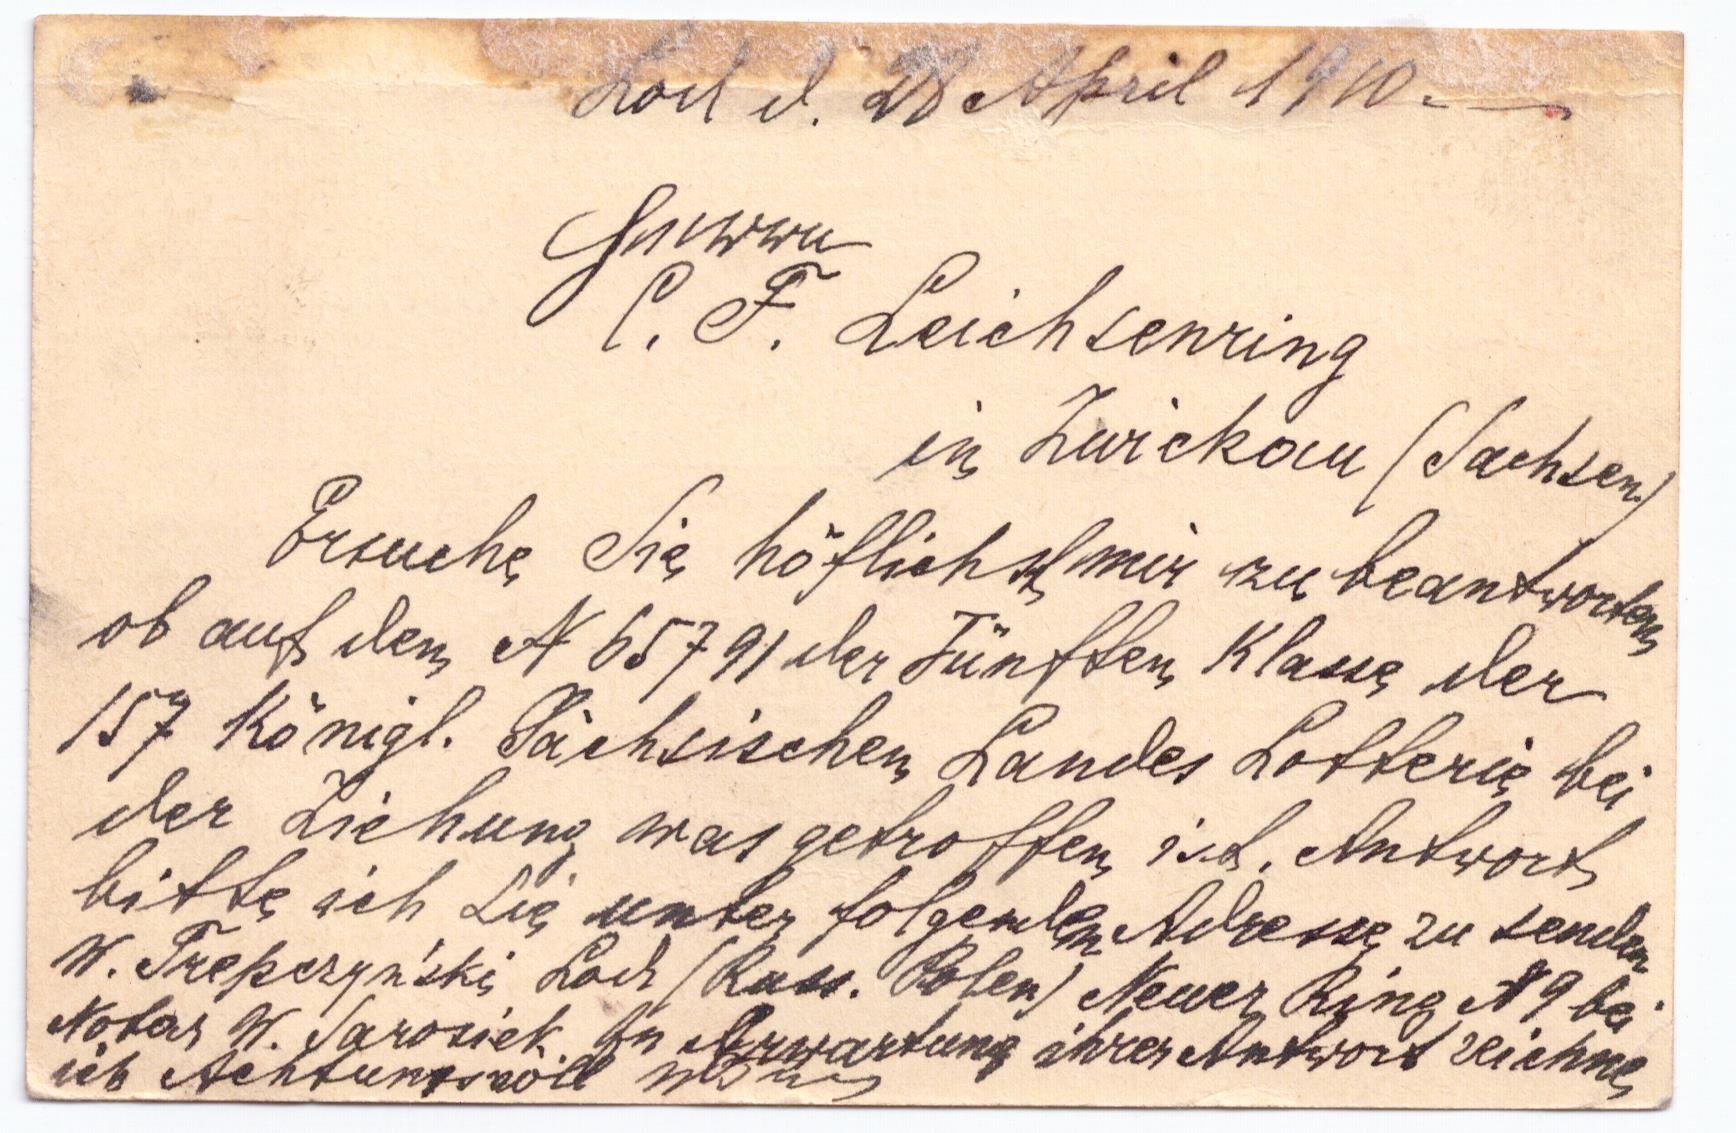 Lod d. 28 April 1910.
Herrn
C. F. Leichsenring
in Zwickau (Sachsen)
Ersuche Sie höflichst mir zu beantworten
ob auf den N 65791 der Fünften Klasse der
157 Königl. Sächsischen Landes Lotterie bei
der Ziehung was getroffen ist. Antwort
bitte ich Sie unter folgenden Adresse zu senden
W. Trepczyński Lodz (Russ. Polen) Neuer Ring N 9 bei
Notar W. Sarosiek. In Erwartung ihrer Antwort zeichne
ich Achtungsvoll